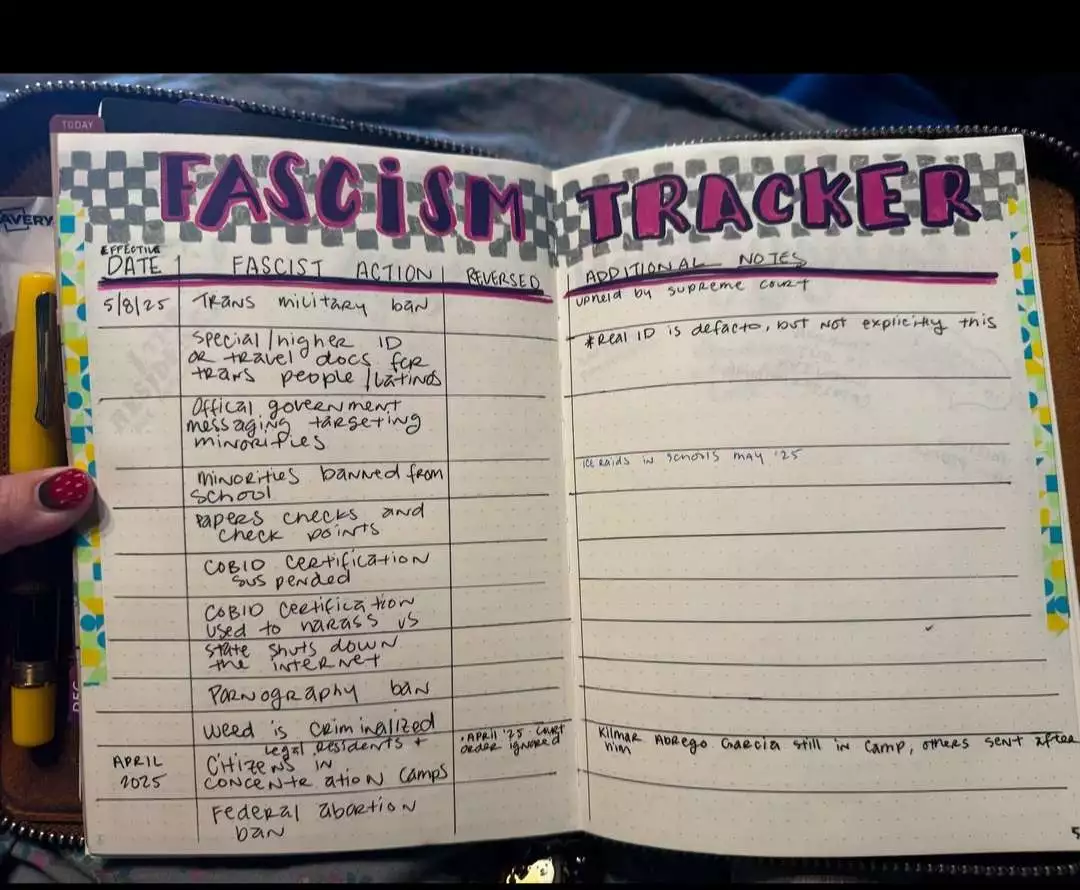 TODAY
AVERY
FASCISM TRACKER
EFFECTIVE
DATE
FASCIST ACTION
REVERSED
ADDITIONAL NOTES
5/8/25
TRANS military ban
upheld by supreme court
Special/higher ID
or travel docs for
trans people/Latinos
*Real ID is defacto, but not explicitly this
Offical government
messaging targeting
minorities
minorities banned from
school
ICE Raids in schools may '25
Papers checks and
check points
COBID certification
suspended
COBID certification
used to harass us
State shuts down
the internet
Pornography ban
Weed is criminalized
APRIL
2025
legal residents +
Citizens in
concentration camps
• APRIL '25 court
order ignored
Kilmar Abrego Garcia still in camp, others sent after
him
Federal abortion
ban
DEC
5